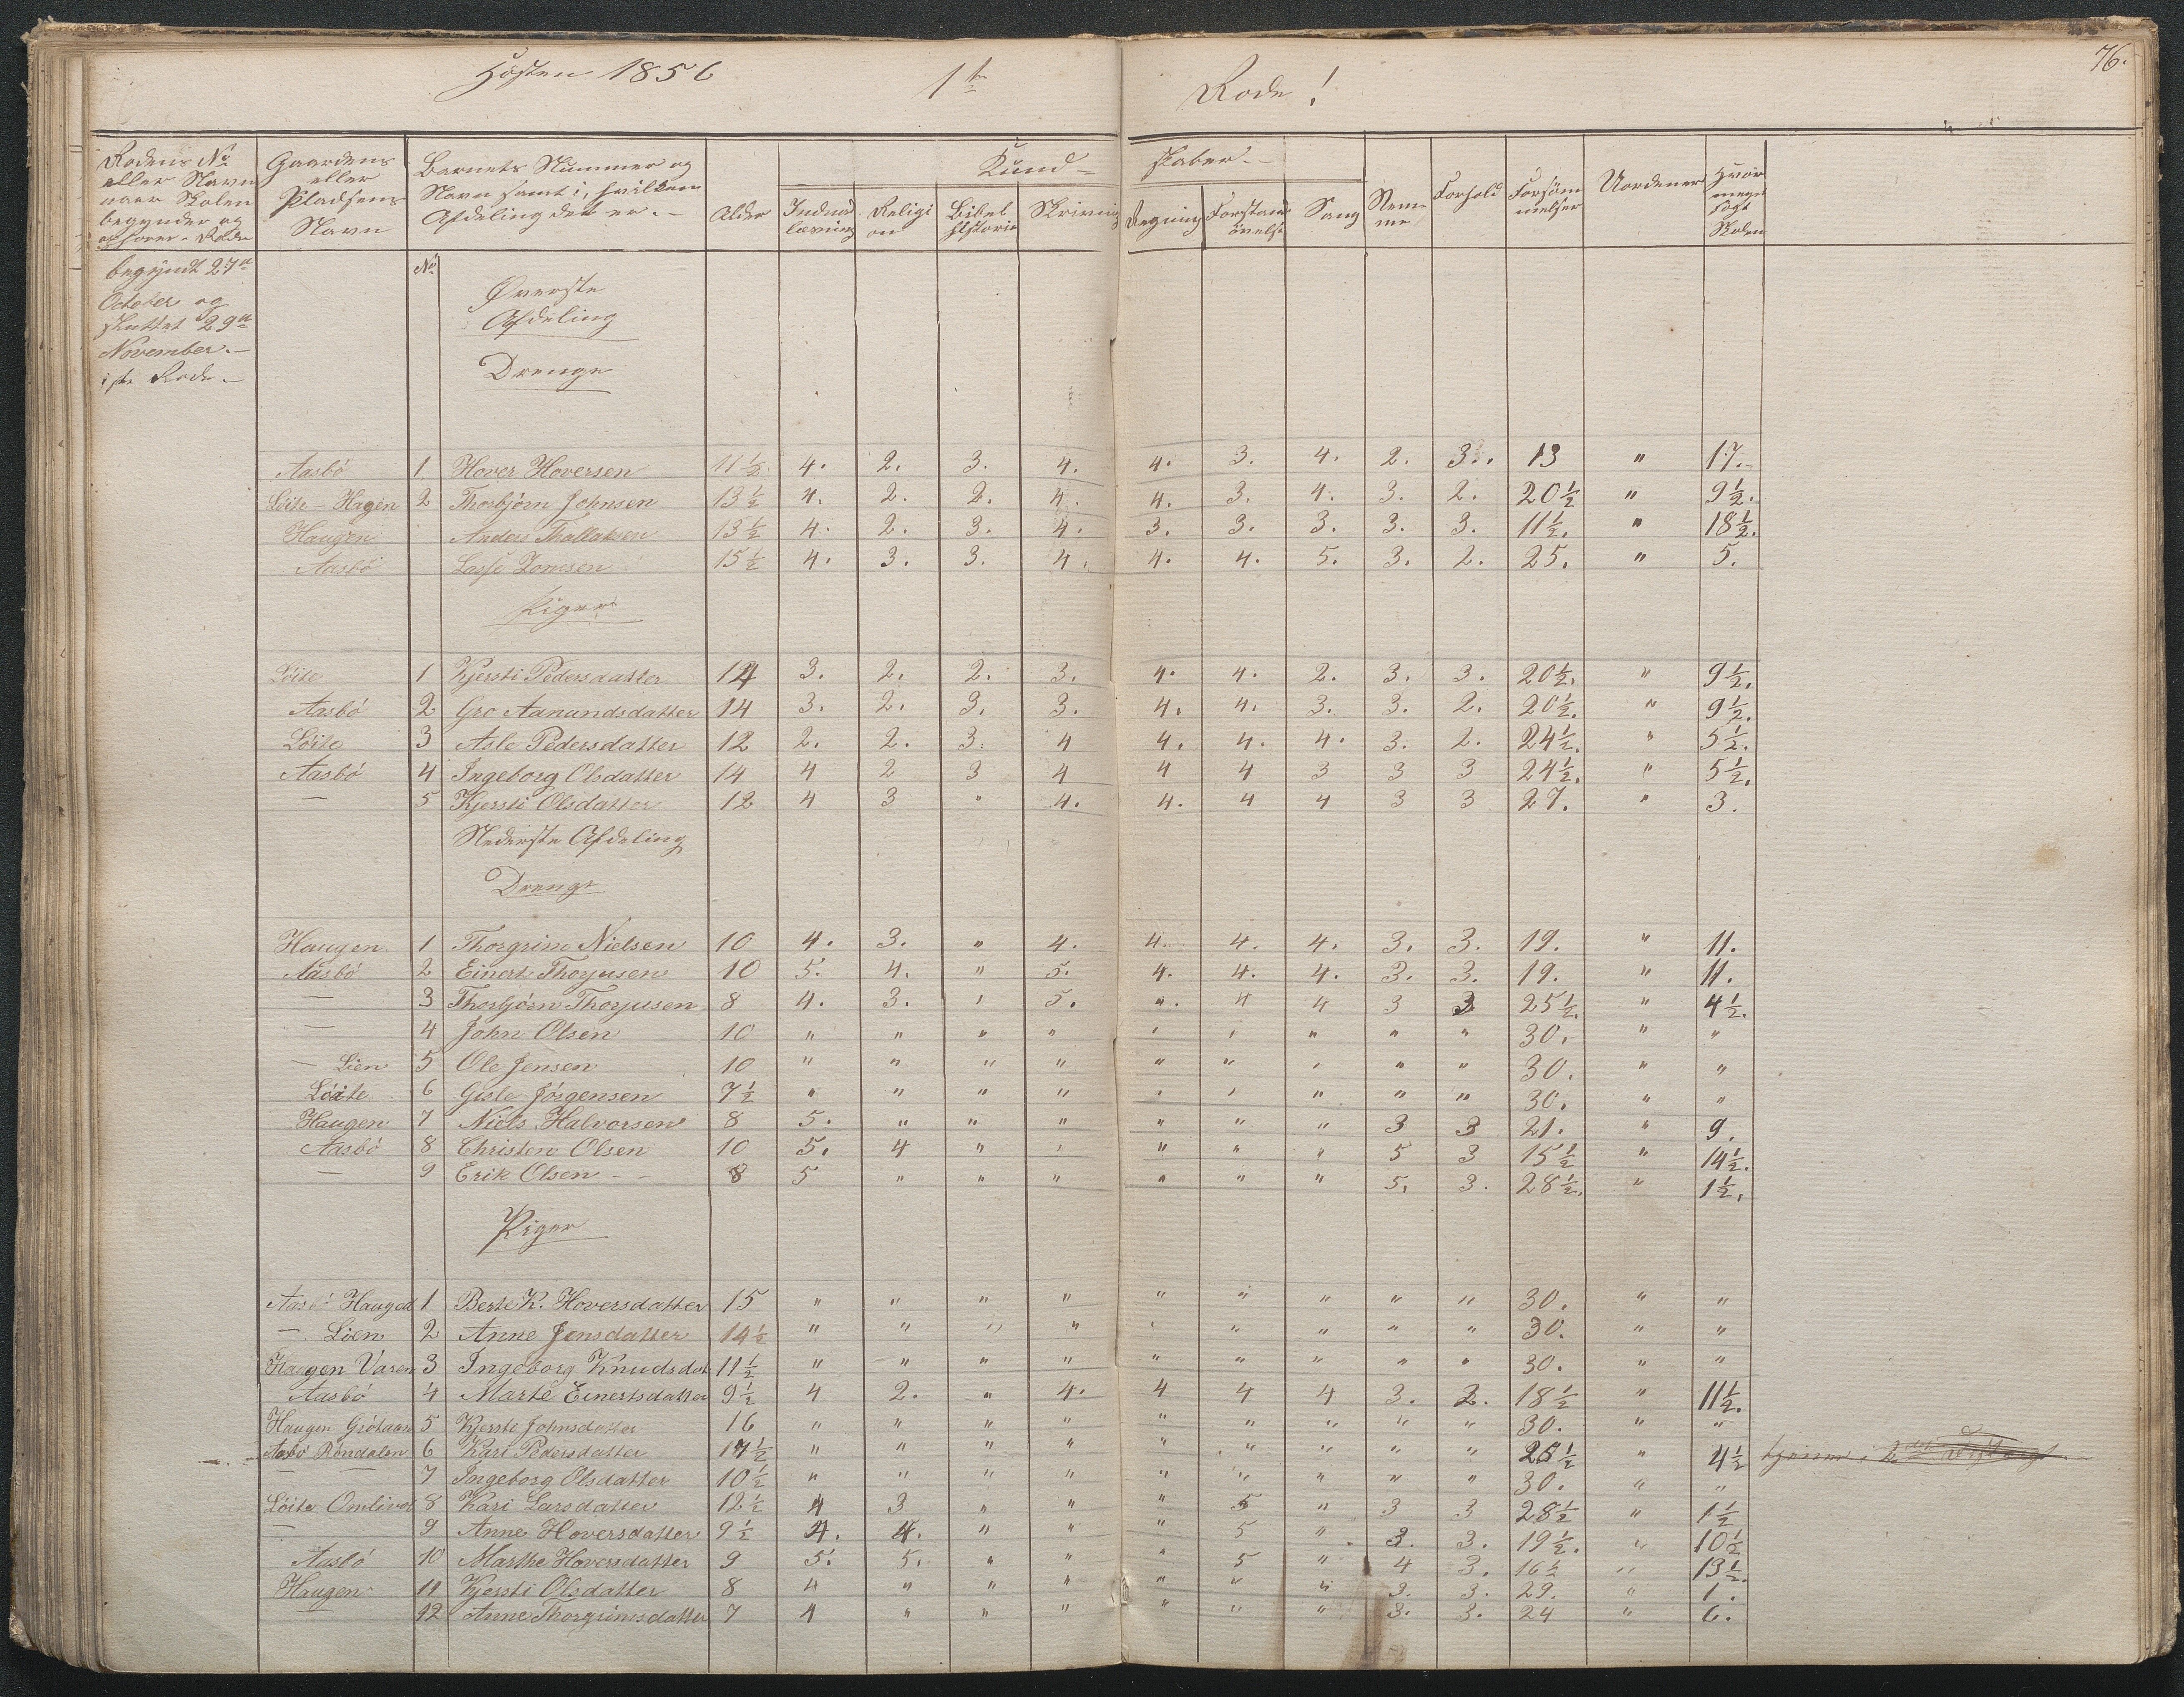 Høsten 1856 1ste Rode! 76.
Rodens No eller Navn naar Skolen begynder og ophører i Roden
Gaardens eller Pladsens Navn
Barnets Nummer og Navn samt i hvilken Afdeling det er. -
Alder
Kundskaber. -
Indenadlæsning
Religion
Bibelhistorie
Skrivning
Regning
Forstandsøvelse
Sang
Nemme
Forhold
Forsømmelser
Uordener
Hvor meget søgt Skolen
begyndt 27de
October og
sluttet 29de
November. -
i 1ste Rode. -
No
Øverste
Afdeling
Drenge
Aasbö 1 Hover Hoversen 11½ 4. 2. 3. 4. 4. 3. 4. 2. 3. 13 " 17.
Löite - Hagen 2 Thorbjörn Johnsen 13½ 4. 2. 2. 4. 4. 3. 4. 3. 2. 20½ " 9½.
Haugen Anders Thallaksen 13½ 4. 2. 3. 4. 3. 3. 3. 3. 3. 11½. " 18½.
Aasbö Lasse Tomsen 15½ 4. 3. 3. 4. 4. 4. 5. 3. 2. 25. " 5.
Piger
Löite 1 Kjersti Pedersdatter 14 3. 2. 2. 3. 4. 4. 2. 3. 3. 20½. " 9½.
Aasbö 2 Gro Aanundsdatter 14 3. 2. 3. 3. 4. 4. 3. 3. 2. 20½. " 9½.
Löite 3 Asle Pedersdatter 12 2. 2. 3. 4 4. 4. 4. 3. 2. 24½. " 5½.
Aasbö 4 Ingeborg Olsdatter 14 4 2 3 4 4 4 3 3 3 24½. " 5½.
— 5 Kjersti Olsdatter 12 4 3 " 4. 4. 4 4 3 3 27. " 3.
Nederste Afdeling
Drenge
Haugen 1 Thorgrim Nielsen 10 4. 3. " 4. 4. 4. 4. 3. 3. 19. " 11.
Aasbö 2 Einert Thorjusen 10 5. 4. " 5. 4. 4. 4. 3. 3. 19. " 11.
— 3 Thorbjörn Thorjusen 8 4. 3. " 5. ". 4 4 3 3 25½. " 4½.
— 4 John Olsen 10 " " " " " " " " " 30. " "
— Lien 5 Ole Jensen 10 " " " " " " " " " 30. " "
Löite 6 Gisle Jörgensen 7½ " " " " " " " " " 30. " "
Haugen 7 Niels Halvorsen 8 5. " " " " " " 3 3 21. " 9.
Aasbö 8 Christen Olsen 10 5. 4 " " " " " 5 3 15½ " 14½.
— 9 Erik Olsen - - 8 5 " " " " " " 5. 3. 28½. " 1½.
Piger
Aasbö Hauged 1 Berte K. Hoversdatter 15 " " " " " " " " " 30. " "
— Lien 2 Anne Jensdatter 14½ " " " " " " " " " 30. " "
Haugen Varen 3 Ingeborg Knudsdat 11½ " " " " " " " " " 30. " "
Aasbö 4 Marte Einertsdatter 9½ 4 2. " 4. 4 4 4 3. 2. 18½ " 11½.
Haugen Grótaas 5 Kjersti Johnsdatter 16 " " " " " " " " " 30. " "
Aasbö Röndalen 6 Kari Pedersdatter 14½ " " " " " " " " " 25½ " 4½ tjenner i 2det
— — 7 Ingeborg Olsdatter 10½ " " " " " " " " " 30. " "
Löite Omlivet 8 Kari Larsdatter 12½ 4 3 " " " 5 " 3 3 28½ " 1½
— 9 Anne Hoversdatter 9½ 4. 4. " " " 5 " 3. 3. 19½. " 10½
Aasbö 10 Marthe Hoversdatter 9 5. 5. " " " 5 " 4 3. 16½ " 13½.
Haugen 11 Kjersti Olsdatter 8 4 " " " " " " 3. 3. 29. " 1.
— 12 Anne Thorgrimsdatter 7 4 " " " " " " 3. 3. 24 " 6.